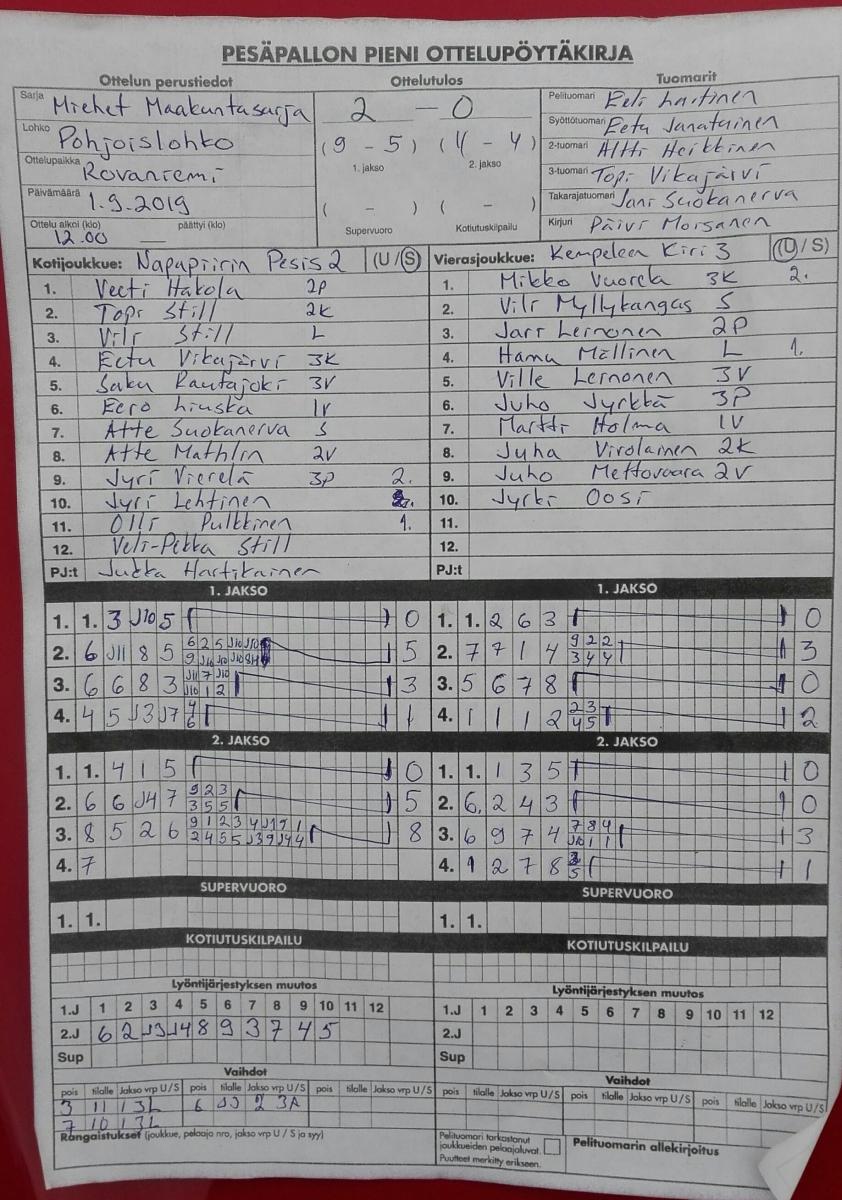 PESÄPALLON PIENI OTTELUPÖYTÄKIRJA
Ottelun perustiedot Ottelutulos Tuomarit
Sarja Miehet Maakuntasarja
Lohko Pohjoislohko
Ottelupaikka Rovaniemi
Päivämäärä 1.9.2019
Ottelu alkoi (klo) päättyi (klo)
12.00 —
2 — 0
(9 - 5) (4 - 4)
1. jakso 2. jakso
( - ) ( - )
Supervuoro Kotiutuskilpailu
Pelituomari Eeli Laitinen
Syöttötuomari Eetu Janatuinen
2-tuomari Altti Heikkinen
3-tuomari Topi Vikajärvi
Takarajatuomari Jani Suokanerva
Kirjuri Päivi Moisanen
Kotijoukkue: Napapiirin Pesis 2 (U / S)
1. Veeti Hakola 2P
2. Topi Still 2K
3. Vili Still L
4. Eetu Vikajärvi 3K
5. Saku Rautajoki 3V
6. Eero Liuska 1V
7. Atte Suokanerva S
8. Atte Mathlin 2V
9. Jyri Vierelä 3P 2.
10. Jyri Lehtinen
11. Olli Pulkkinen 1.
12. Veli-Pekka Still
PJ:t Jukka Hartikainen
Vierasjoukkue: Kempeleen Kiri 3 (U / S)
1. Mikko Vuorela 3K 2.
2. Vili Myllykangas S
3. Jari Leinonen 2P
4. Hannu Mällinen L 1.
5. Ville Leinonen 3V
6. Juho Jyrkkä 3P
7. Martti Holma 1V
8. Juha Virolainen 2K
9. Juho Mettovaara 2V
10. Jyrki Oosi
11.
12.
PJ:t
1. JAKSO
1. 1. 3 J10 5 0
2. 6 J11 8 5 5
3. 6 6 8 3 3
4. 4 5 J3 J7 4 6 1
2. JAKSO
1. 1. 4 1 5 0
2. 6 6 J4 7 9 2 3 5
3 5 5
3. 8 5 2 6 8
4. 7
SUPERVUORO
1. 1.
KOTIUTUSKILPAILU
Lyöntijärjestyksen muutos
1.J 1 2 3 4 5 6 7 8 9 10 11 12
2.J 6 2 J3 J4 8 9 3 7 4 5
Sup
Vaihdot
pois tilalle Jakso vrp U / S pois tilalle Jakso vrp U / S pois tilalle Jakso vrp U / S
3 11 1 3L 6 2 3A
7 10 1 3L
Rangaistukset (joukkue, pelaaja nro, jakso vrp U / S ja syy)
1. JAKSO
1. 1. 2 6 3 0
2. 7 7 1 4 9 2 2 3
3 4 4
3. 5 6 7 8 0
4. 1 1 1 2 2 3 2
4 5
2. JAKSO
1. 1. 1 3 5 0
2. 6. 2 4 3 0
3. 6 9 7 4 7 8 4 3
J10 1 1
4. 1 2 7 8 5 1
SUPERVUORO
1. 1.
KOTIUTUSKILPAILU
Lyöntijärjestyksen muutos
1.J 1 2 3 4 5 6 7 8 9 10 11 12
2.J
Sup
Vaihdot
pois tilalle Jakso vrp U / S pois tilalle Jakso vrp U / S pois tilalle Jakso vrp U / S
Pelituomari tarkastanut
joukkueiden pelaajaluvat.
Puutteet merkitty erikseen.
Pelituomarin allekirjoitus